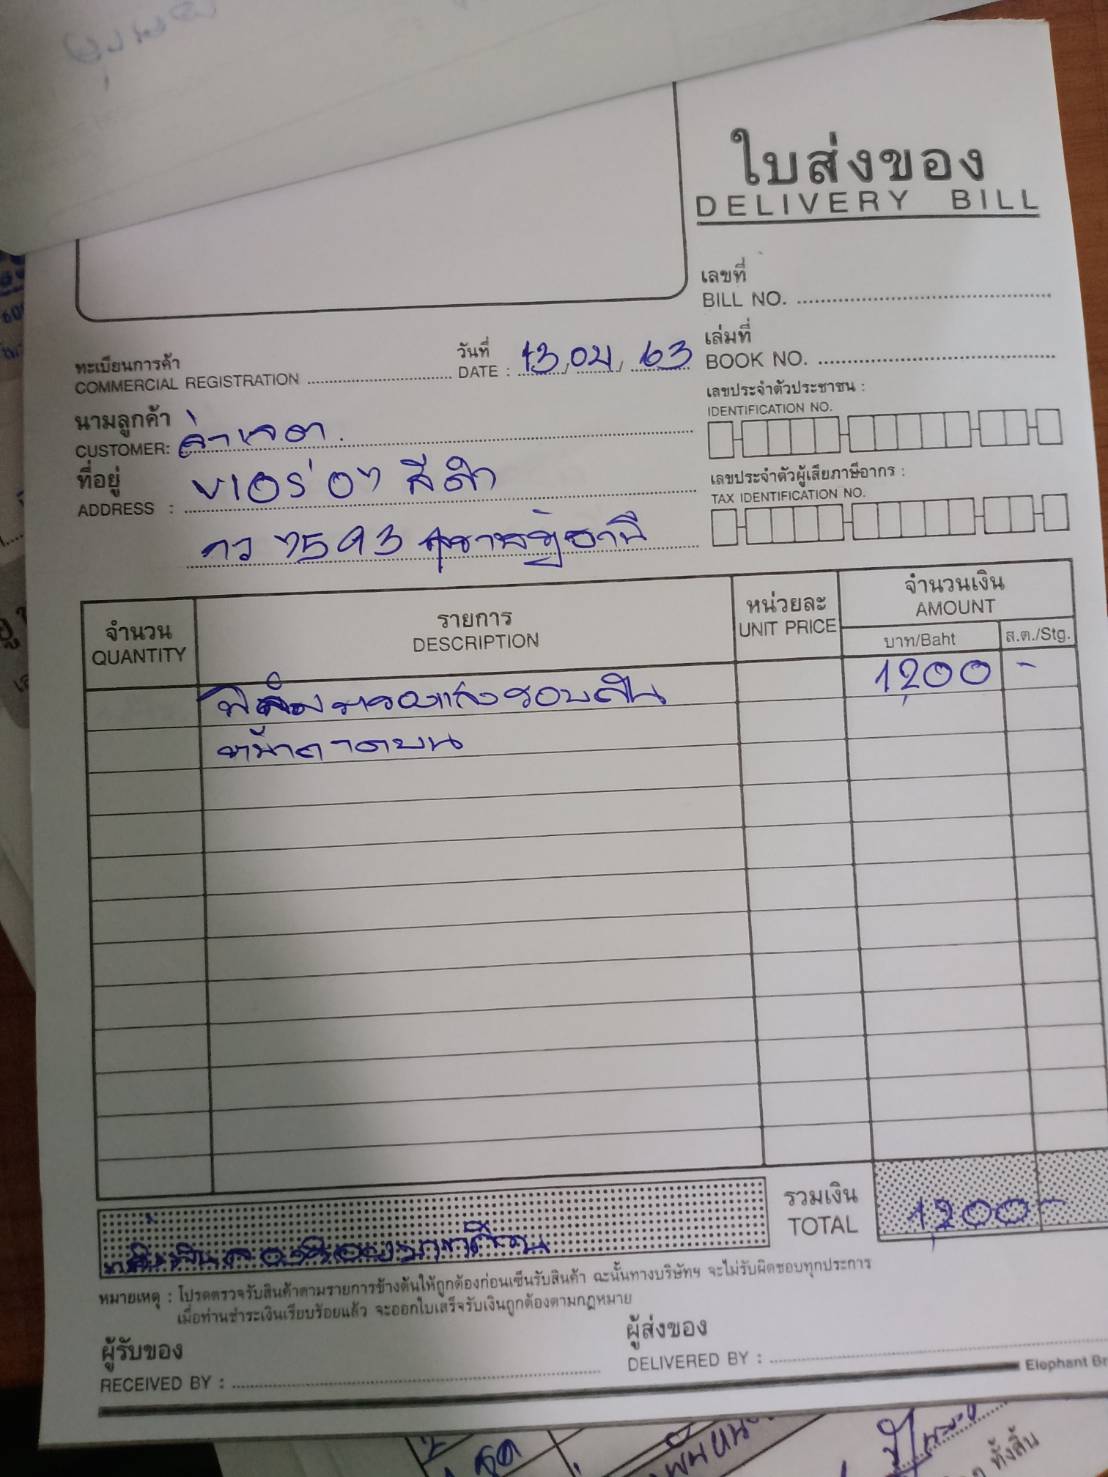 ใบส่งของ
DELIVERY BILL
เลขที่
BILL NO.
ทะเบียนการค้า
COMMERCIAL REGISTRATION
วันที่
DATE : 13, 02, 63
เล่มที่
BOOK NO.
นามลูกค้า
CUSTOMER:
ที่อยู่
ADDRESS : VIOS สีดำ
กว 7593 สุราษฎ์ธานี
เลขประจำตัวประชาชน :
IDENTIFICATION NO.
เลขประจำตัวผู้เสียภาษีอากร :
TAX IDENTIFICATION NO.
จำนวน
QUANTITY
รายการ
DESCRIPTION
หน่วยละ
UNIT PRICE
จำนวนเงิน
AMOUNT
บาท/Baht
ส.ต./Stg.
ฟิล์มกรองแสงรอบคัน 1,200 -
รวมเงิน
TOTAL
1,200 -
หมายเหตุ : โปรดตรวจรับสินค้าตามรายการข้างต้นให้ถูกต้องก่อนเซ็นรับสินค้า ฉะนั้นทางบริษัทฯ จะไม่รับผิดชอบทุกประการ
เมื่อท่านชำระเงินเรียบร้อยแล้ว จะออกใบเสร็จรับเงินถูกต้องตามกฎหมาย
ผู้รับของ
RECEIVED BY :
ผู้ส่งของ
DELIVERED BY :
Elephant Br
ทั้งสิ้น